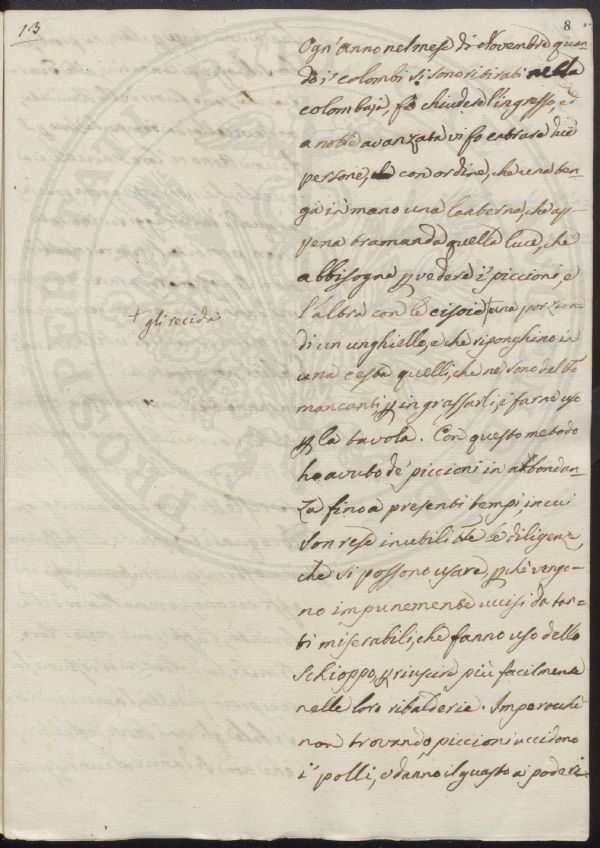 13
8
Ogn'anno nel mese di Novembre quan-
do i colombi si sono ritirati nella
colombaja, fo chiudere l'ingresso, e
a notte avanzata vi fo entrare due
persone, con ordine, che una ten-
ga in mano una lanterna, che ap-
pena tramanda quella luce, che
abbisogna p vedere i piccioni, e
l'altra con le cisoie + una porzione
di un unghiello, e che riponghino in
una cesta quelli, che ne sono del tto
mancanti p ingrassarli, e farne uso
p la tavola. Con questo metodo
ho avuto de' piccioni in abbondan-
za fino a presenti tempi, in cui
son rese inutili tte le diligenze,
che si possono usare, pchè vengo-
no impunemente uccisi da tan-
ti miserabili, che fanno uso dello
schioppo, p riuscire più facilmente
nelle loro ribalderie. Imperochè
non trovando piccioni uccidono
i polli, e danno il guasto ai poderi
+ gli recida